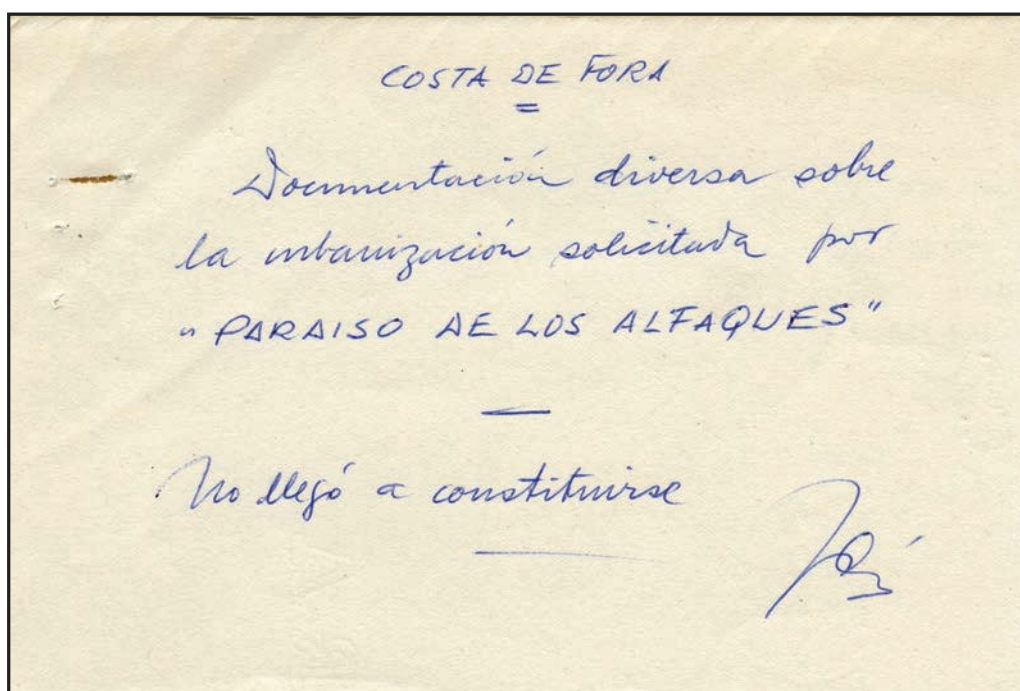 COSTA DE FORA
Documentación diversa sobre
la urbanización solicitada por
"PARAISO DE LOS ALFAQUES"
No llegó a constituirse